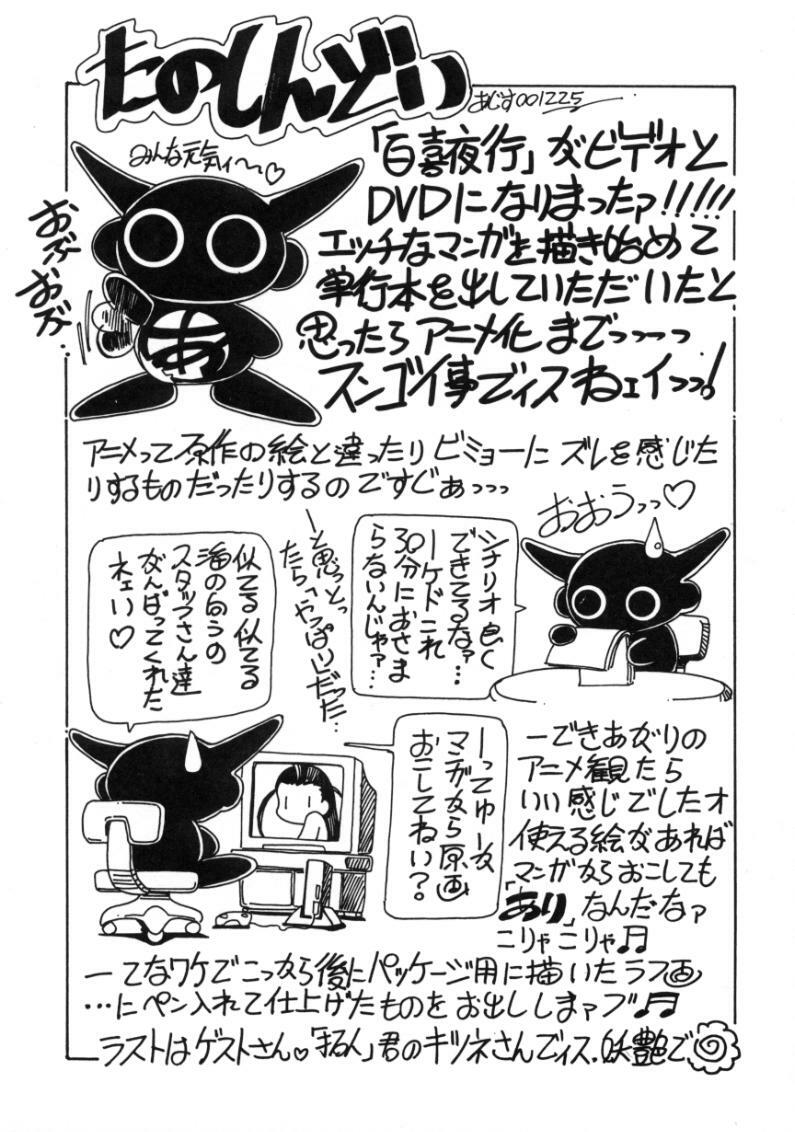 たのしんどい
あじす001225
みんな元気ィ〜♡
おぶ
おぶ‥
あ
「百喜夜行」がビデオと
DVDになりまったァ!!!!!
エッチなマンガを描き始めて
単行本を出していただいたと
思ったらアニメ化までっーっ
スンゴイ事でイスねェイっっ!
アニメって原作の絵と違ったりビミョーにズレを感じた
りするものだったりするのですじぁっっっ
おおうっっ♡
シナリオ良く
できてるなァ…
ーケドこれ
30分におさま
らないんじゃァ…
ーと思っとっ
たら「やっぱり」だった…
似てる似てる
海の向うの
スタッフさん達
がんばってくれた
ネェい♡
ーってゆーか
マンガから原画
おこしてねい?。
ーできあがりの
アニメ観たら
いい感じでしたオ
使える絵があれば
マンガからおこしても
「あり」なんだなァ
こりゃこりゃ♬
ーてなワケでこっから後にパッケージ用に描いたラフ画
…にペン入れて仕上げたものをお出ししまァブ♬
ラストはゲストさん♡「まる人」君のキツネさんでイス.妖艶で